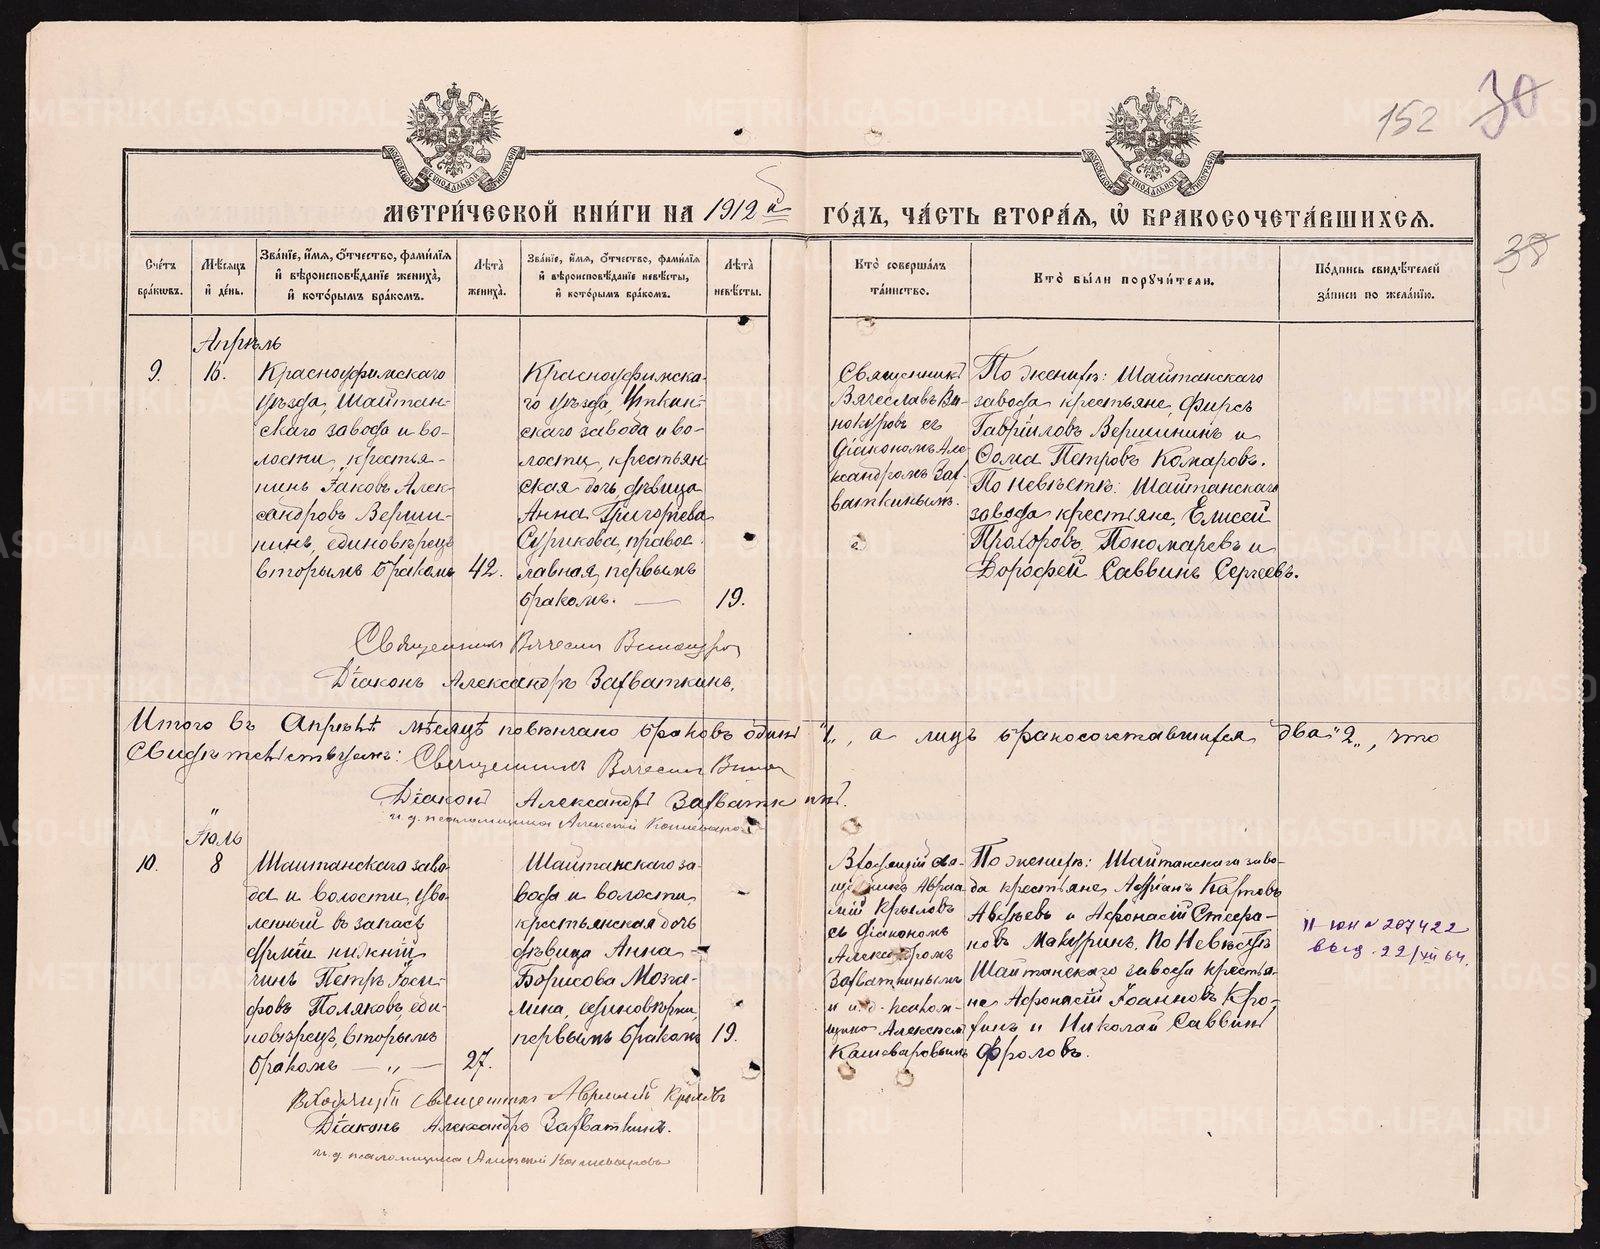 152 30
38
МОСКОВСКОЙ СѴНОДАЛЬНОЙ ТИПОГРАФІИ
МОСКОВСКОЙ СѴНОДАЛЬНОЙ ТИПОГРАФІИ
МЕТРИ́ЧЕСКОЙ КНИ́ГИ НА 1912 й ГО́ДЪ, ЧА́СТЬ ВТОРА́Ѧ, Ѽ БРАКОСОЧЕТА́ВШИХСѦ.
Сче́тъ бра́кѡвъ.
Мѣ́сѧцъ и҆ де́нь.
Зва́нїе, и҆́мѧ, ѻ҆́тчество, фами́лїѧ и҆ вѣроисповѣ́данїе жениха̀, и҆ кото́рымъ бра́комъ.
Лѣ́та жениха̀.
Зва́нїе, и҆́мѧ, ѻ҆́тчество, фами́лїѧ и҆ вѣроисповѣ́данїе невѣ́сты, и҆ кото́рымъ бра́комъ.
Лѣ́та невѣ́сты.
Кто̀ соверша́лъ та́инство.
Кто̀ бы́ли порꙋчи́тели.
По́дпись свидѣ́телей за́писи по жела́нїю.
Апрѣль
9.
16.
Красноуфимскаго
уѣзда, Шайтан-
скаго завода и во-
лости, крестья-
нинъ Іаковъ Алек-
сандровъ Верши-
нинъ, единовѣрецъ
вторымъ бракомъ
42.
Красноуфимска-
го уѣзда, Уткин-
скаго завода и во-
лости, крестьян
ская дочь, дѣвица
Анна Григорьева
Сурикова, правос-
лавная, первымъ
бракомъ. —
19.
Священникъ
Вячеславъ Ви-
нокуровъ съ
діакономъ Але
ксандромъ Зах-
ваткинымъ.
По женихѣ: Шайтанскаго
завода крестьяне, Фирсъ
Гавріиловъ Вершининъ и
Ѳома Петровъ Комаровъ.
По невѣстѣ: Шайтанскаго
завода крестьяне, Елисей
Прохоровъ Пономаревъ и
Дорофей Саввинъ Сергеевъ.
Священникъ Вячеслав Винокуров
Діаконъ Александръ Захваткинъ.
Итого въ Апрѣлѣ мѣсяцѣ повѣнчано браковъ одинъ „1„, а лицъ бракосочетавшихся два „2„, что
Свидѣтельствуемъ: Священникъ Вячеслав Вино
Діаконъ Александръ Захваткинъ.
и. д. псаломщика Алексѣй Кашеваров
Іюль
10.
8
Шайтанскаго заво-
да и волости, уво-
ленный въ запасъ
арміи нижній
чинъ Петръ Іоси-
фовъ Поляковъ, еди-
новѣрецъ, вторымъ
бракомъ — „ —
27.
Шайтанскаго за-
вода и волости,
крестьянская дочь
дѣвица Анна
Борисова Мозга-
лина, единовѣрка,
первымъ бракомъ
19.
Входящій свя-
щенникъ Авраа
мій Крыловъ
съ діакономъ
Александромъ
Захваткинымъ
и и. д. псалом-
щика Алексѣем
Кашеваровымъ
По женихѣ: Шайтанскаго заво-
да крестьяне, Адріанъ Карповъ
Авдѣевъ и Афонасій Стефа-
новъ Макуринъ. По Невѣстѣ
Шайтанскаго завода крестья-
не Афонасій Іоанновъ Кро-
и Николай Саввинъ
Фроловъ.
II-ЮН № 207422
выд. 22/XII 64.
Входящій священникъ Авраамій Крыловъ
Діаконъ Александръ Захваткинъ.
и. д. псаломщика Алексѣй Кашеваровъ